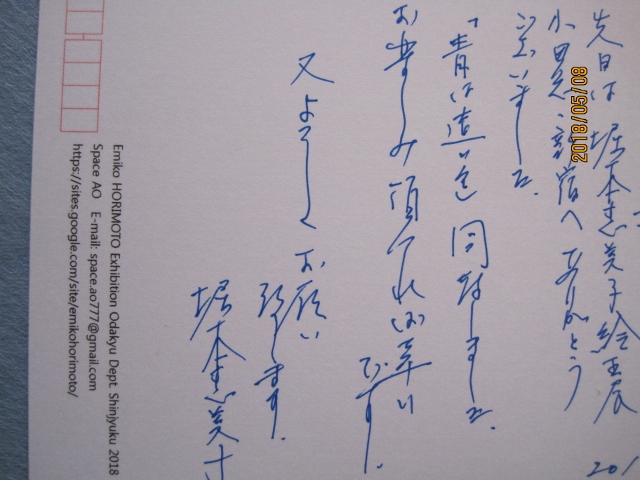 先日は堀本惠美子絵画展
小田急新宿へありがとう
ございました。
「青は遠い色」同封しました。
お楽しみ頂ければ幸い
です。
又よろしくお願い
致します。
堀本惠美子
201
2018/05/08
Emiko HORIMOTO Exhibition Odakyu Dept Shinjyuku 2018
Space AO E-mail: space.ao777@gmail.com
https://sites.google.com/site/emikohorimoto/